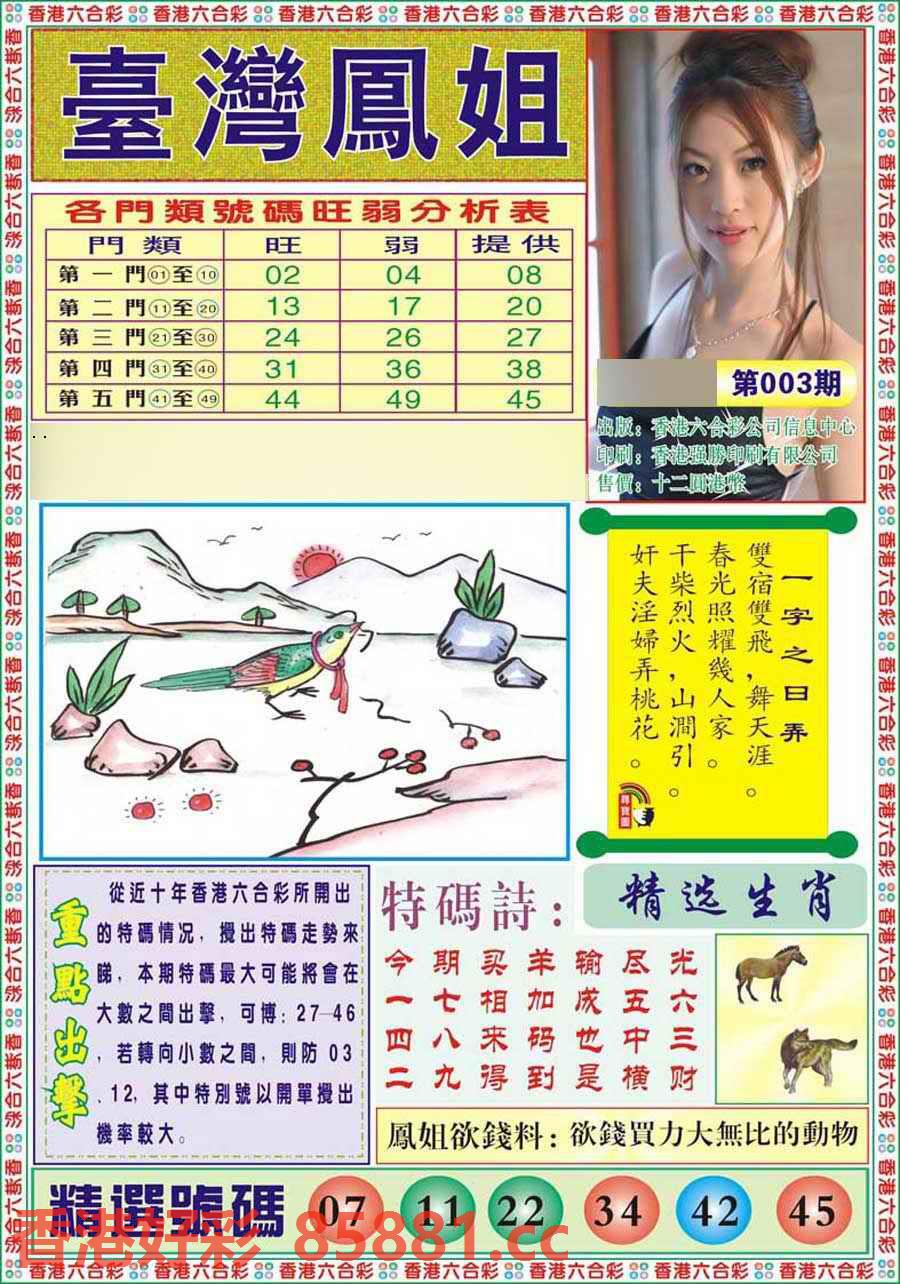 香港六合彩 香港六合彩 香港六合彩 香港六合彩 香港六合彩 香港六合彩 香港六合彩
臺灣鳳姐
各門類號碼旺弱分析表
門類 旺 弱 提供
第一門01至10 02 04 08
第二門11至20 13 17 20
第三門21至30 24 26 27
第四門31至40 31 36 38
第五門41至49 44 49 45
第003期
出版：香港六合彩公司信息中心
印刷：香港强勝印刷有限公司
售價：十二圓港幣
一字之曰弄
雙宿雙飛，舞天涯。
春光照耀幾人家。
干柴烈火，山澗引。
奸夫淫婦弄桃花。
尋寶圖
重點出擊
從近十年香港六合彩所開出
的特碼情况，攪出特碼走勢來
睇，本期特碼最大可能將會在
大數之間出擊，可博：27—46
，若轉向小數之間，則防 03
、12，其中特別號以開單攪出
機率較大。
特碼詩：
今期买羊输尽光
一七相加成五六
四八来码也中三
二九得到是横财
精选生肖
鳳姐欲錢料：欲錢買力大無比的動物
精選號碼 07 11 22 34 42 45
香港好彩 85881.cc
香港六合彩 香港六合彩 香港六合彩 香港六合彩 香港六合彩 香港六合彩 香港六合彩